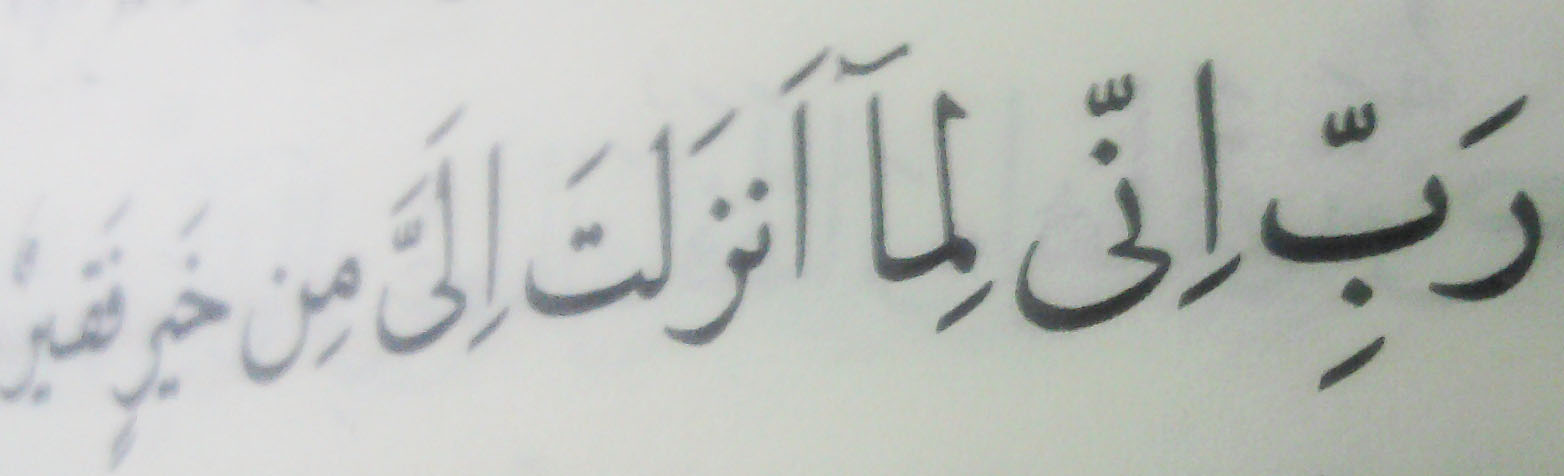 رَبِّ اِنِّی لِمَآ اَنزَلتَ اِلَیَّ مِن خَیرٍ فَقیرٌ